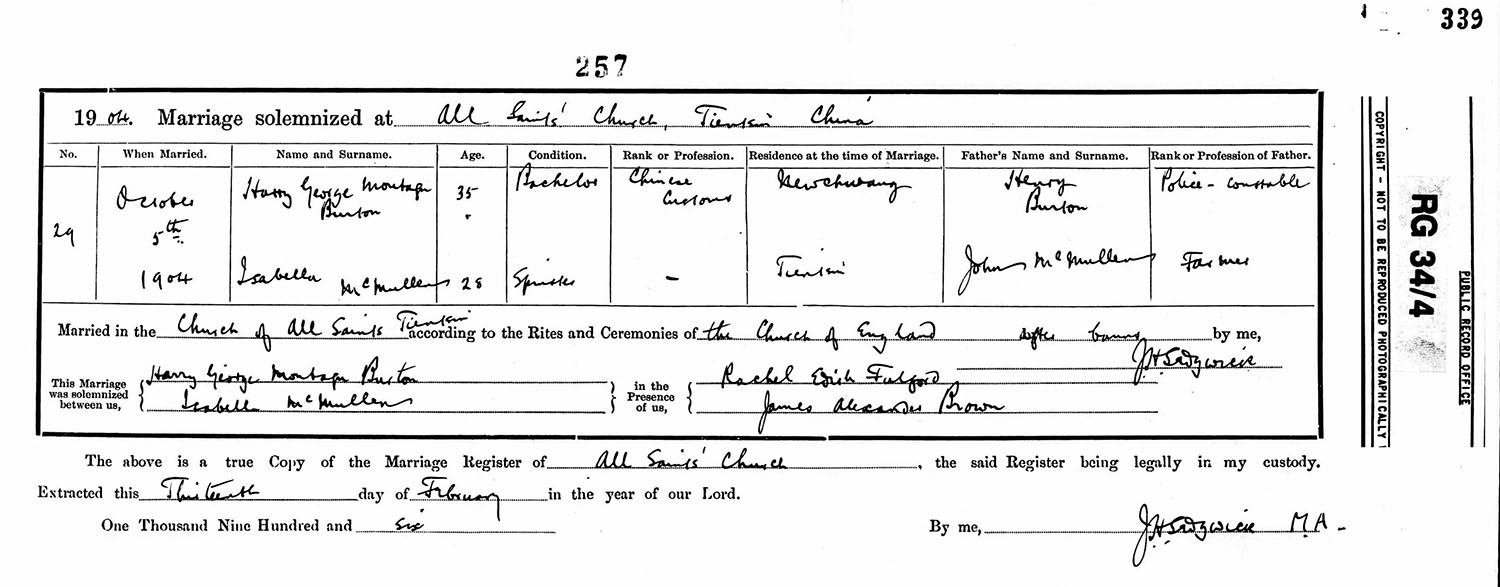 339
257
1904. Marriage solemnized at All Saints' Church, Tientsin China
No. When Married. Name and Surname. Age. Condition. Rank or Profession. Residence at the time of Marriage. Father's Name and Surname. Rank or Profession of Father.
29 October 5th 1904
Harry George Montagu Burton 35 Bachelor Chinese Customs Newchwang Henry Burton Police-constable
Isabella McMullen 28 Spinster - Tientsin John McMullen Farmer
Married in the Church of All Saints Tientsin according to the Rites and Ceremonies of the Church of England after banns by me,
J H Sedgwick
This Marriage was solemnized between us, Harry George Montagu Burton
Isabella McMullen
in the Presence of us, Rachel Edith Fulford
James Alexander Brown
The above is a true Copy of the Marriage Register of All Saints' Church, the said Register being legally in my custody.
Extracted this Thirteenth day of February in the year of our Lord.
One Thousand Nine Hundred and Six By me, J.H. Sedgwick M.A-
COPYRIGHT - NOT TO BE REPRODUCED PHOTOGRAPHICALLY
RG 34/4
PUBLIC RECORD OFFICE